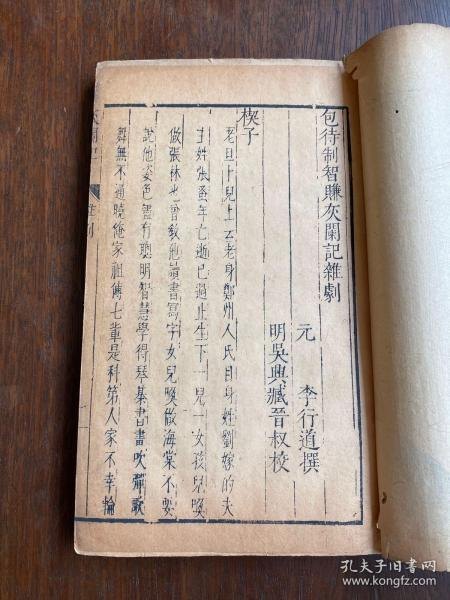 包待制智賺灰闌記雜劇
元 李行道撰
明吳興臧晉叔校
楔子
老旦卜兒上云老身鄭州人氏自身姓劉嫁的夫
主姓張蚤年亡逝已過止生下一兒一女孩兒喚
做張林也曾教他讀書寫字女兒喚做海棠不要
說他姿色盡有聰明智慧學得琴棊書畫吹彈歌
舞無不通曉俺家祖傳七輩是科第人家不幸輪
孔夫子旧书网
www.kongfz.com